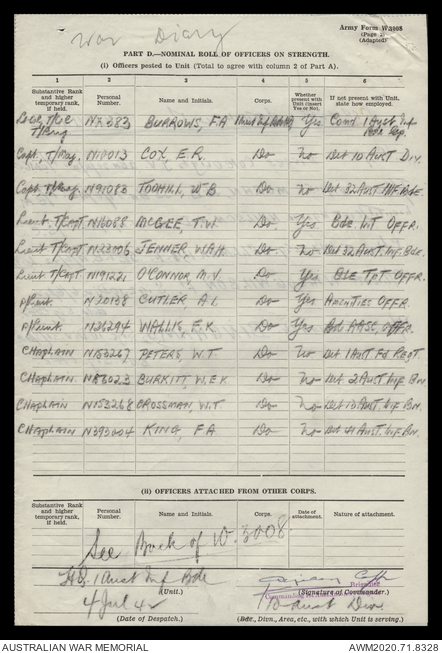 War Diary
Army Form W3008
(Page 2)
(Adapted)
PART D.—NOMINAL ROLL OF OFFICERS ON STRENGTH.
(i) Officers posted to Unit (Total to agree with column 2 of Part A).
1 2 3 4 5 6
Substantive Rank and higher temporary rank, if held. Personal Number. Name and Initials. Corps. Whether present with Unit (insert Yes or No). If not present with Unit, state how employed.
BURROWS, F A Yes Comd 1 Aust Inf
COX, E R. Do No Det 10 Aust Div.
TOOHILL, W B. Do No Det 32 Aust Inf Bde
Lieut T/Capt N16088 McGEE, T. W. Do Yes Bde Int OFFR.
Lieut T/Capt JENNER W.A.H. Do No Det 32 Aust. Inf Bde
Lieut T/Capt N191221 O'CONNOR, M. V. Do Yes BDE TPT OFFR.
N20138 CUTLER, A L. Do Yes Amenities OFFR.
N26294 WALLIS, E. K. Do Yes
CHAPLAIN PETERS, W. T Do No Det 1 Aust Fd Regt
CHAPLAIN BURKITT, W. E K Do No Det 2 Aust Inf Bn.
CHAPLAIN N153268 CROSSMAN, W. T Do No Det 10 Aust. Inf Bn.
CHAPLAIN N393004 KING, F A Do No Det 41 Aust. Inf Bn.
(ii) OFFICERS ATTACHED FROM OTHER CORPS.
Substantive Rank and higher temporary rank, if held. Personal Number. Name and Initials. Corps. Date of attachment. Nature of attachment.
See Back of W.3008
HQ. 1 Aust Inf Bde
Brigadier
(Unit.) (Signature of Commander.)
4 Jul 42 10 Aust Div
(Date of Despatch.) (Bde., Divn., Area, etc., with which Unit is serving.)
AUSTRALIAN WAR MEMORIAL AWM2020.71.8328